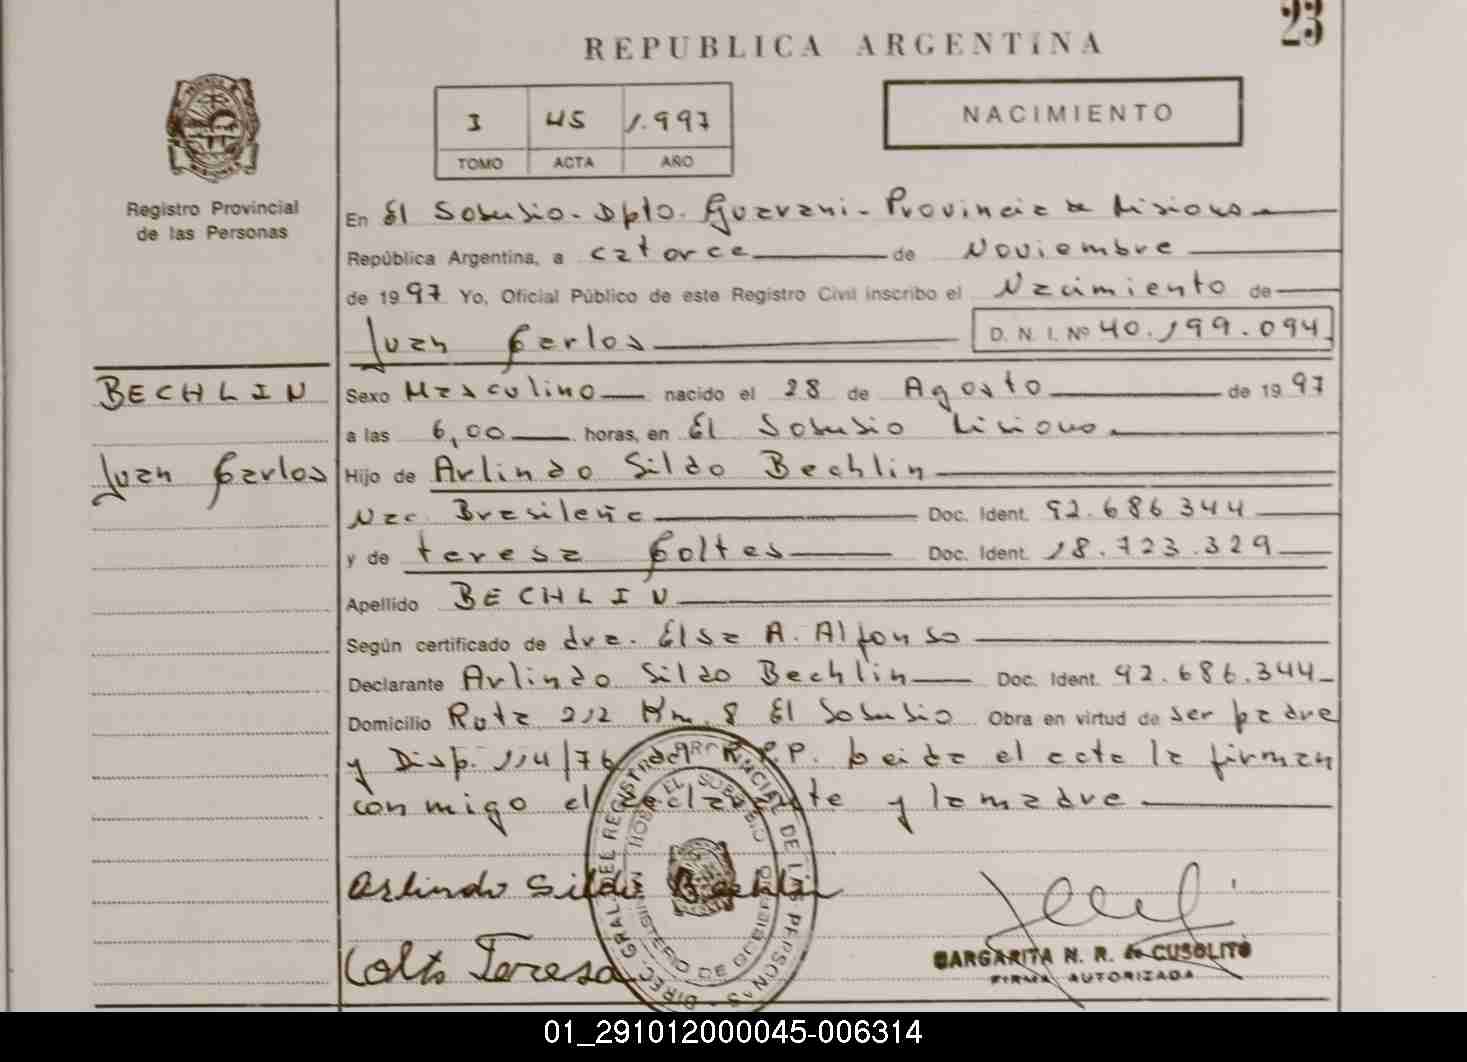 23
REPUBLICA ARGENTINA
I 45 1.997
TOMO ACTA AÑO
NACIMIENTO
Registro Provincial
de las Personas
En El Soberbio - Dpto. Guarani - Provincia de Misiones
República Argentina, a catorce de Noviembre
de 1997 Yo, Oficial Público de este Registro Civil inscribo el Nacimiento de
Juan Carlos D. N. I. Nº 40.199.094
BECHLIN
Juan Carlos
Sexo Masculino nacido el 28 de Agosto de 1997
a las 6,00 horas, en El Soberbio Misiones
Hijo de Arlindo Sildo Bechlin
Nac. Brasileña Doc. Ident. 92.686.344
y de teresa Coltes Doc. Ident. 18.723.329
Apellido BECHLIN
Según certificado de dra. Elsa A. Alfonso
Declarante Arlindo Sildo Bechlin Doc. Ident. 92.686.344
Domicilio Ruta 212 Km. 8 El Soberbio Obra en virtud de ser padre
y Disp. 114/76 del R.P.P. Leida el acta la firman
conmigo el declarante y la madre
Arlindo Sildo Bechlin
Teresa
MARGARITA N. R. de CUSOLITO
FIRMA AUTORIZADA
DIREC. GRAL. DEL REGISTRO PROVINCIAL DE LAS PERSONAS
MINISTERIO DE GOBIERNO
EL SOBERBIO
01_291012000045-006314